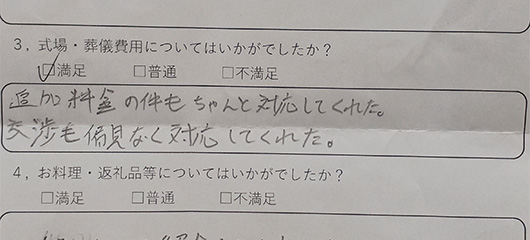 3. 式場・葬儀費用についてはいかがでしたか?
☑満足 □普通 □不満足
追加料金の件もちゃんと対応してくれた。
交渉も偏見なく対応してくれた。
4. お料理・返礼品等についてはいかがでしたか?
□満足 □普通 □不満足